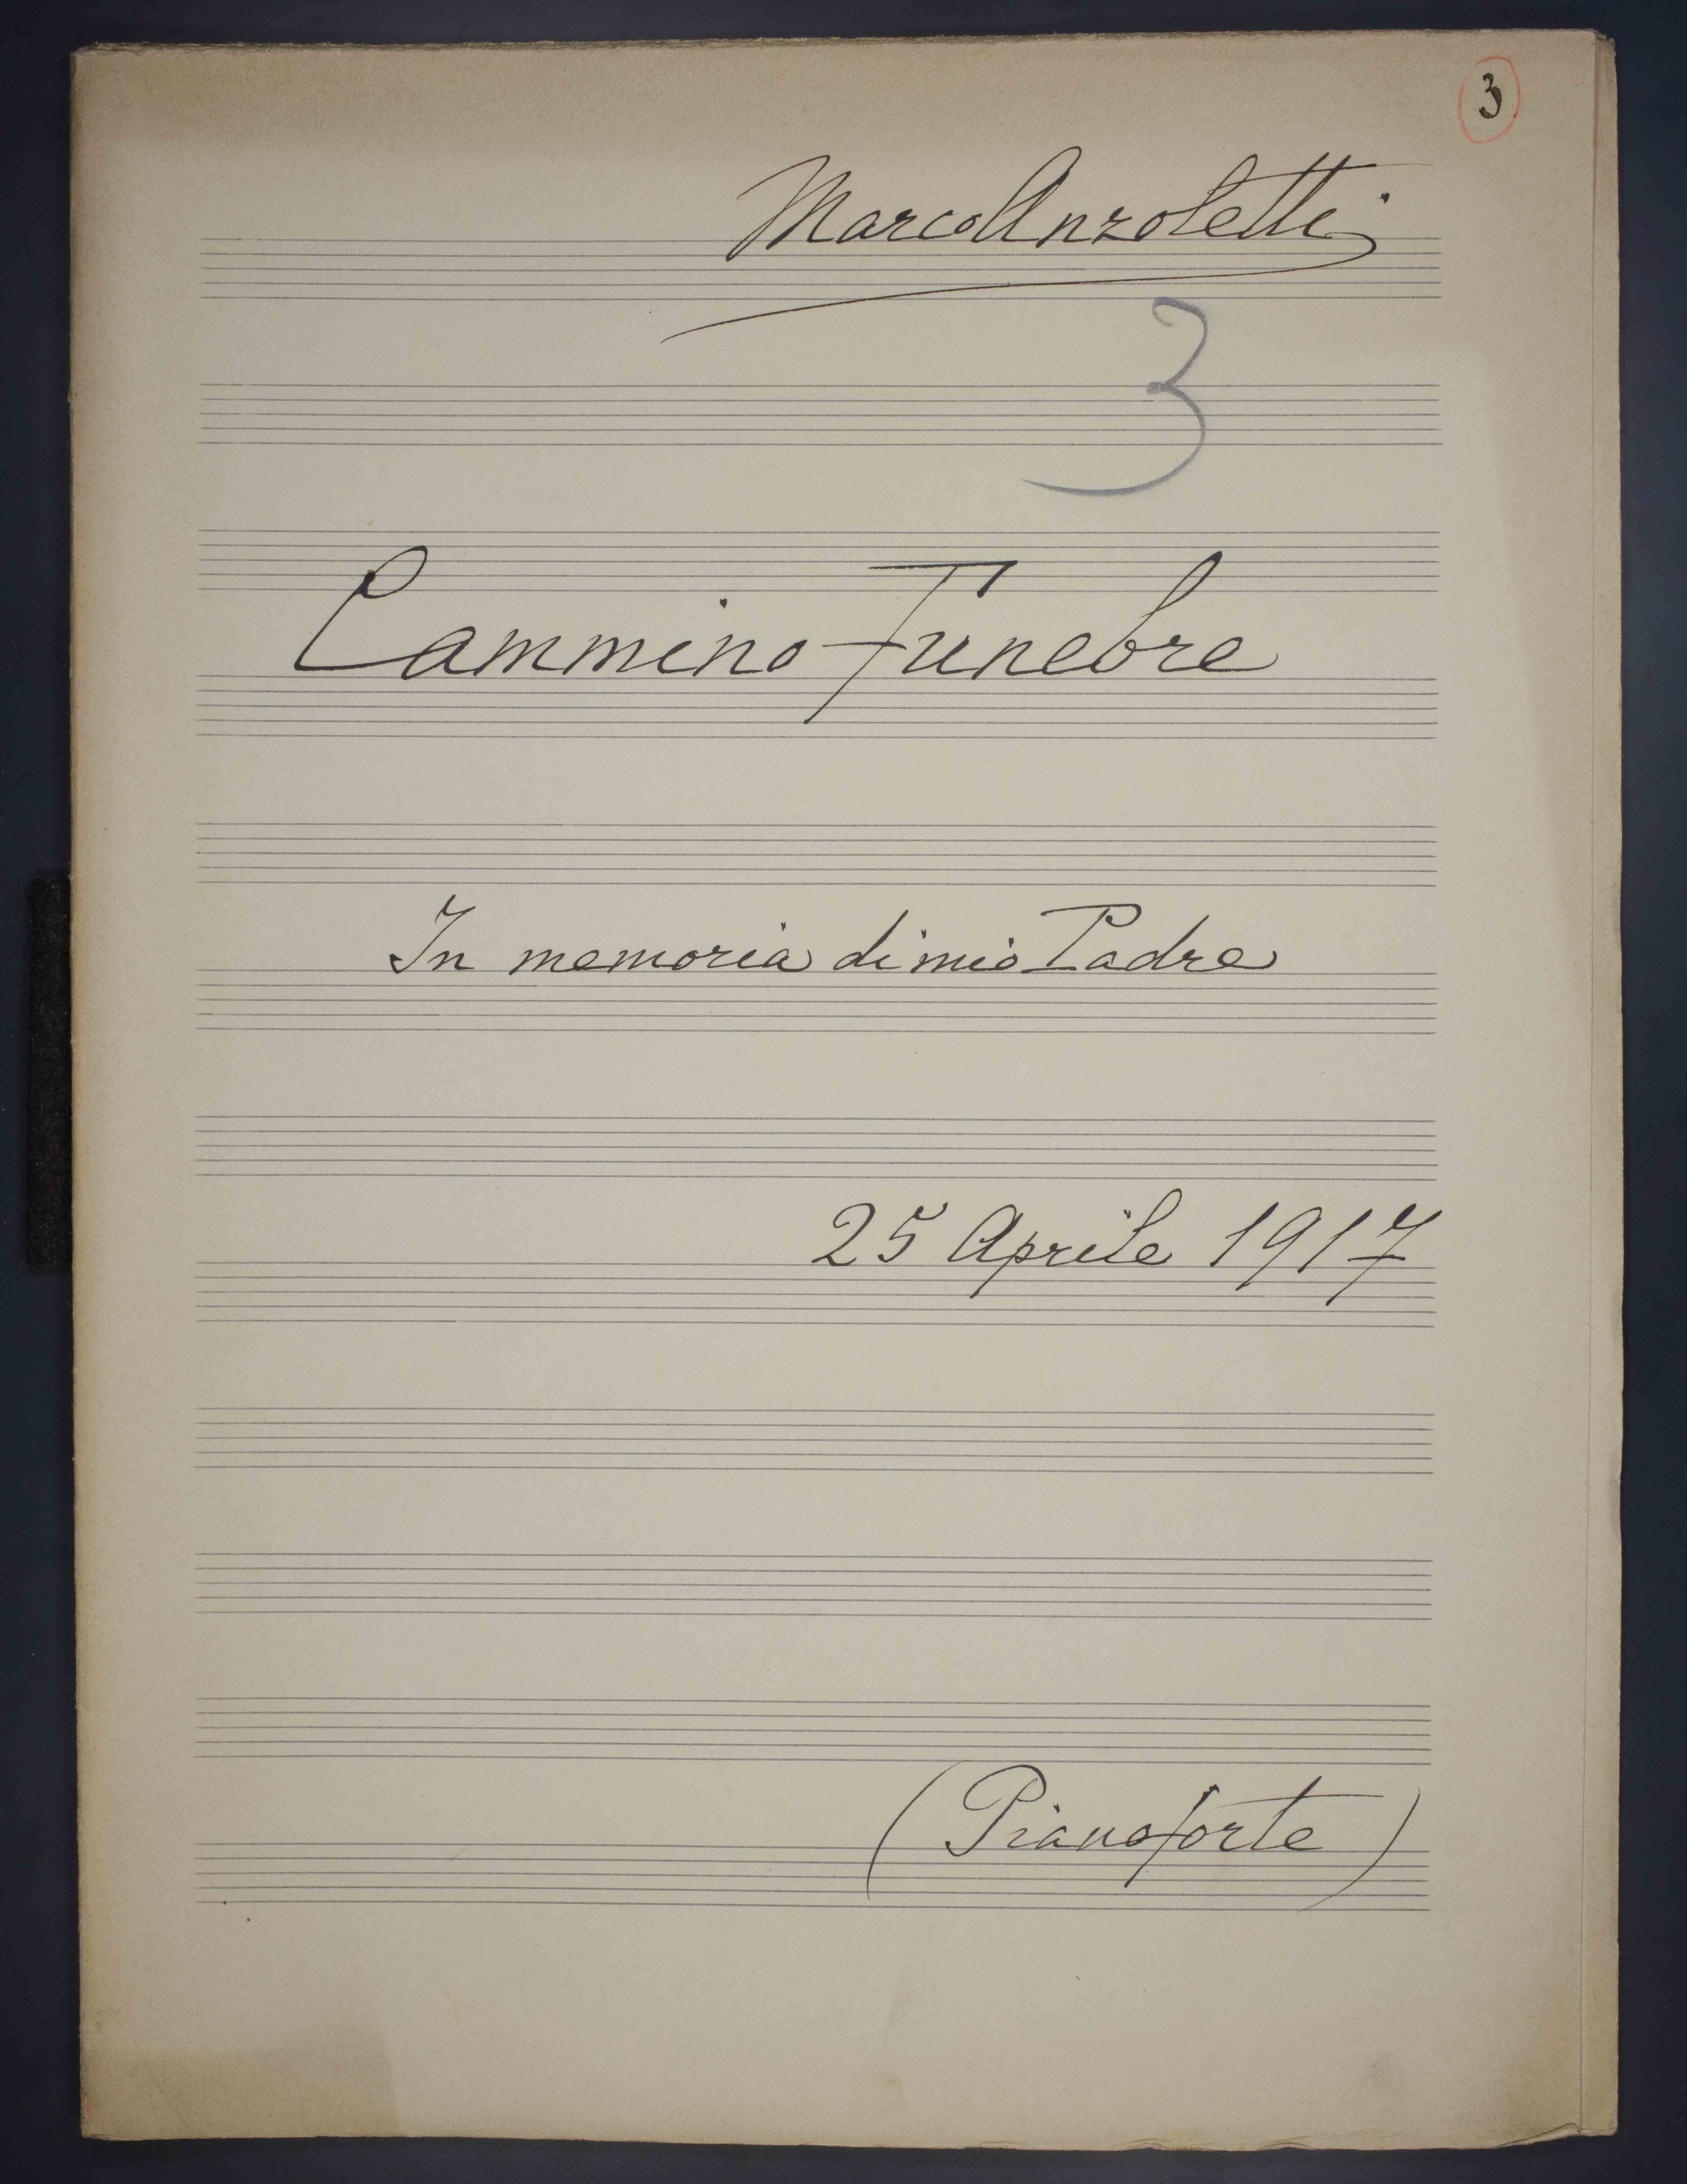 3
Marco Anzoletti
3
Cammino Funebre
In memoria di mio Padre
25 Aprile 1917
(Pianoforte)